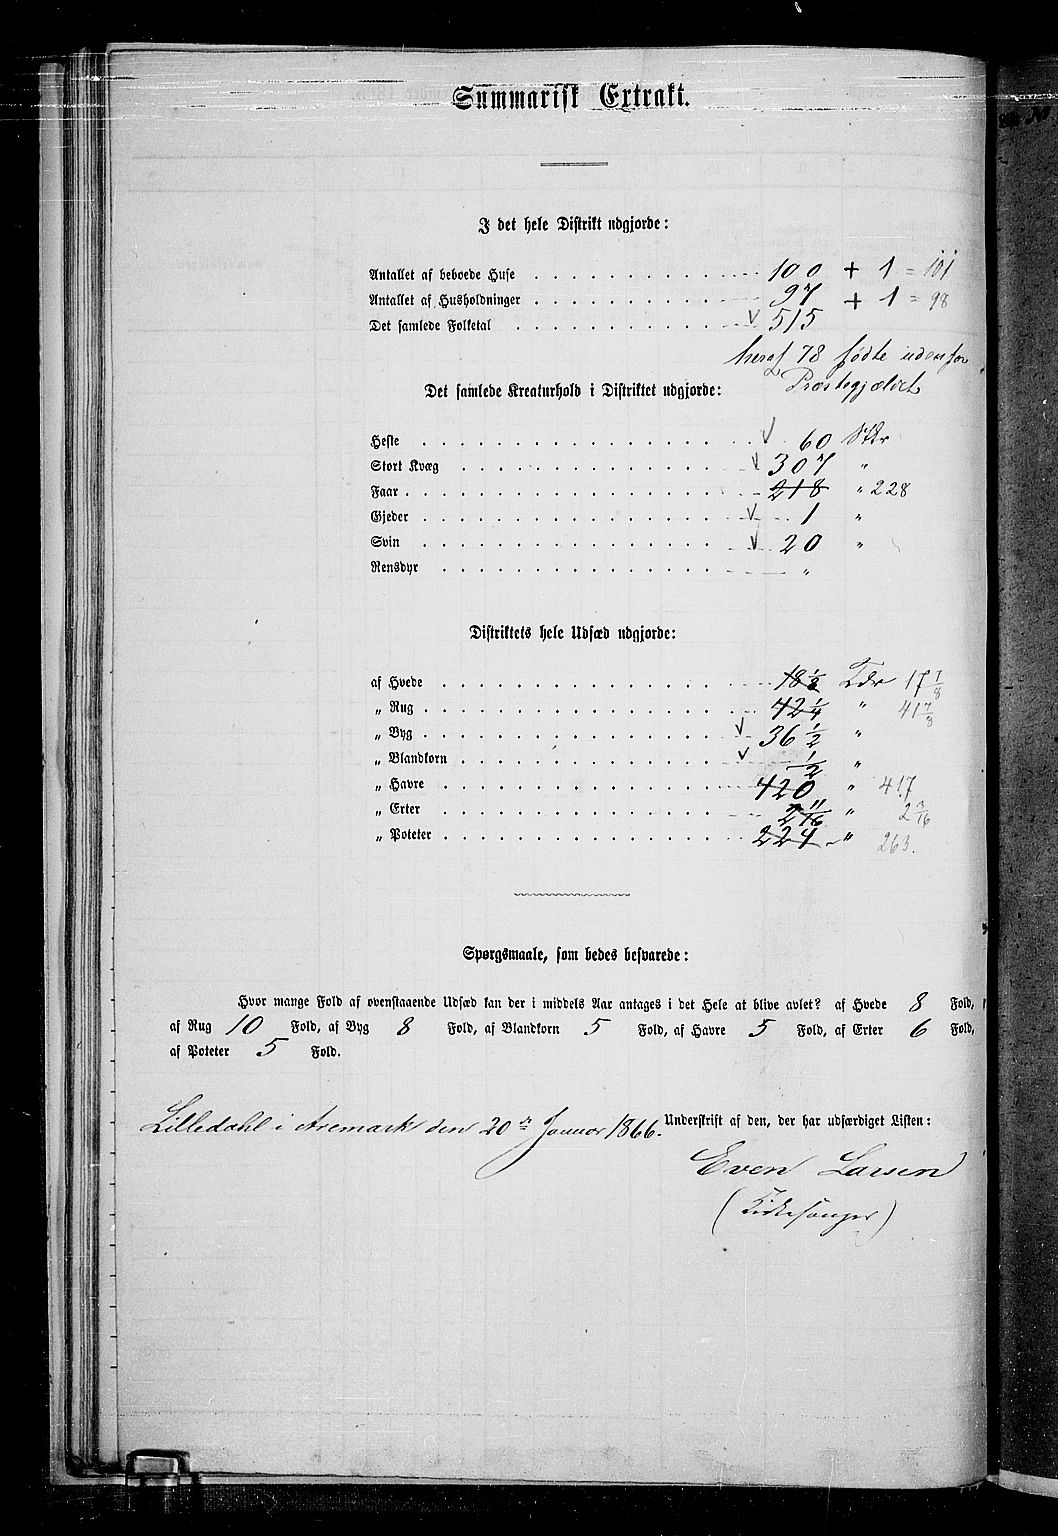 Summarisk Extrakt.
I det hele Distrikt udgjorde:
Antallet af beboede Huse 100 + 1 = 101
Antallet af Husholdninger 97 + 1 = 98
Det samlede Folketal 515
heraf 78 fødte udenfor
Præstegjældet
Det samlede Kreaturhold i Distriktet udgjorde:
Heste 60 Stkr
Stort Kvæg 307 "
Faar 218 " 228
Gjeder 1 "
Svin 20 "
Rensdyr "
Distriktets hele Udsæd udgjorde:
af Hvede 18 1/8 Tdr 17 7/8
" Rug 42 1/4 " 41 7/8
" Byg 36 1/2 "
" Blandkorn 1/2 "
" Havre 420 " 417
" Erter 2 11/16 " 2 3/16
" Poteter 224 " 263.
Spørgsmaale, som bedes besvarede:
Hvor mange Fold af ovenstaaende Udsæd kan der i middels Aar antages i det Hele at blive avlet? af Hvede 8 Fold,
af Rug 10 Fold, af Byg 8 Fold, af Blandkorn 5 Fold, af Havre 5 Fold, af Erter 6 Fold,
af Poteter 5 Fold.
Lilledahl i Aremark den 20de Januar 1866. Underskrift af den, der har udfærdiget Listen:
Even Larsen
(Kirkesanger)